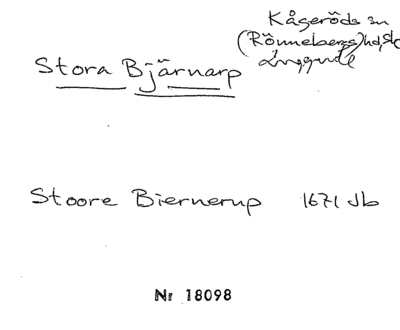 Kågeröds sn
(Rönnebergs) hd, Sk
Luggude
Stora Bjärnarp
Stoore Biernerup 1671 Jb
Nr 18098